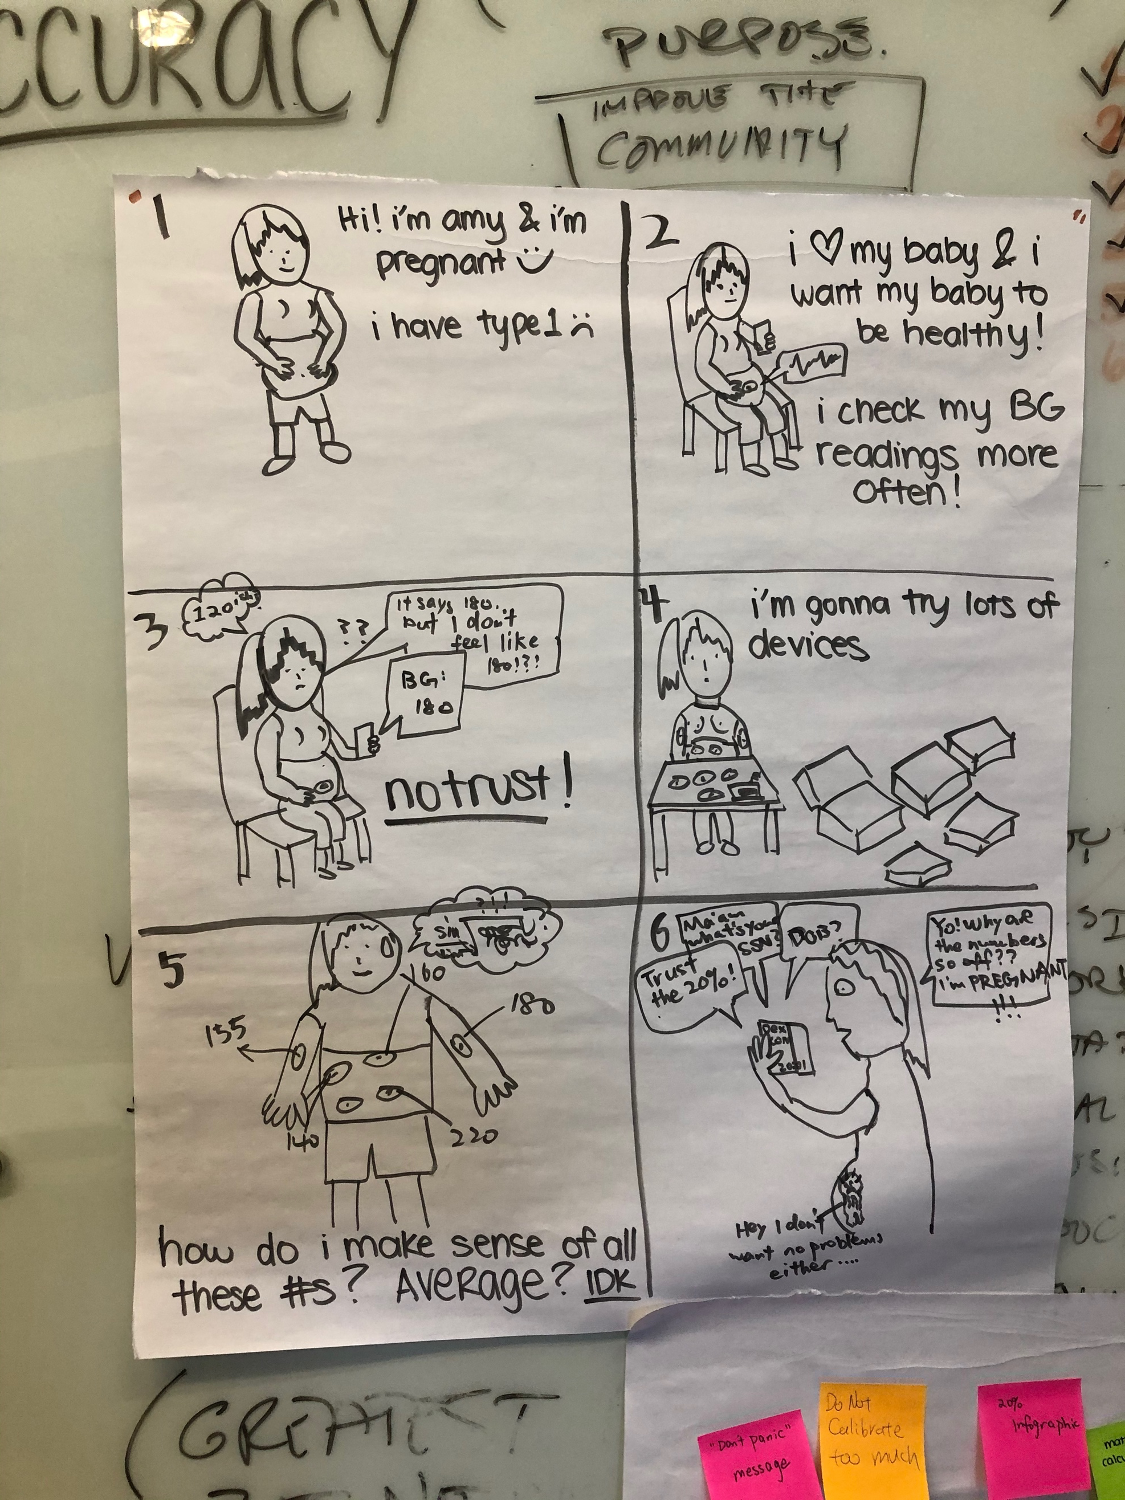 CCURACY
PURPOSE.
IMPROVE THE
COMMUNITY
1
Hi! i'm amy & i'm
pregnant
i have type 1
2
i ♡ my baby & i
want my baby to
be healthy!
i check my BG
readings more
often!
3
120ish
??
it says 180.
but I don't
feel like
180!?!
BG:
180
no trust!
4
i'm gonna try lots of
devices
5
?!!
160
180
155
140
220
how do i make sense of all
these #s? AVERAGE? IDK
6
Ma'am
what's your
SSN?
DOB?
Trust
the 20%!
Yo! Why are
the numbers
so off??
I'm PREGNANT
!!!
Dex
com
Hey I don't
want no problems
either....
GREATEST
"Don't panic"
message
Do Not
Calibrate
too much
20%
Infographic